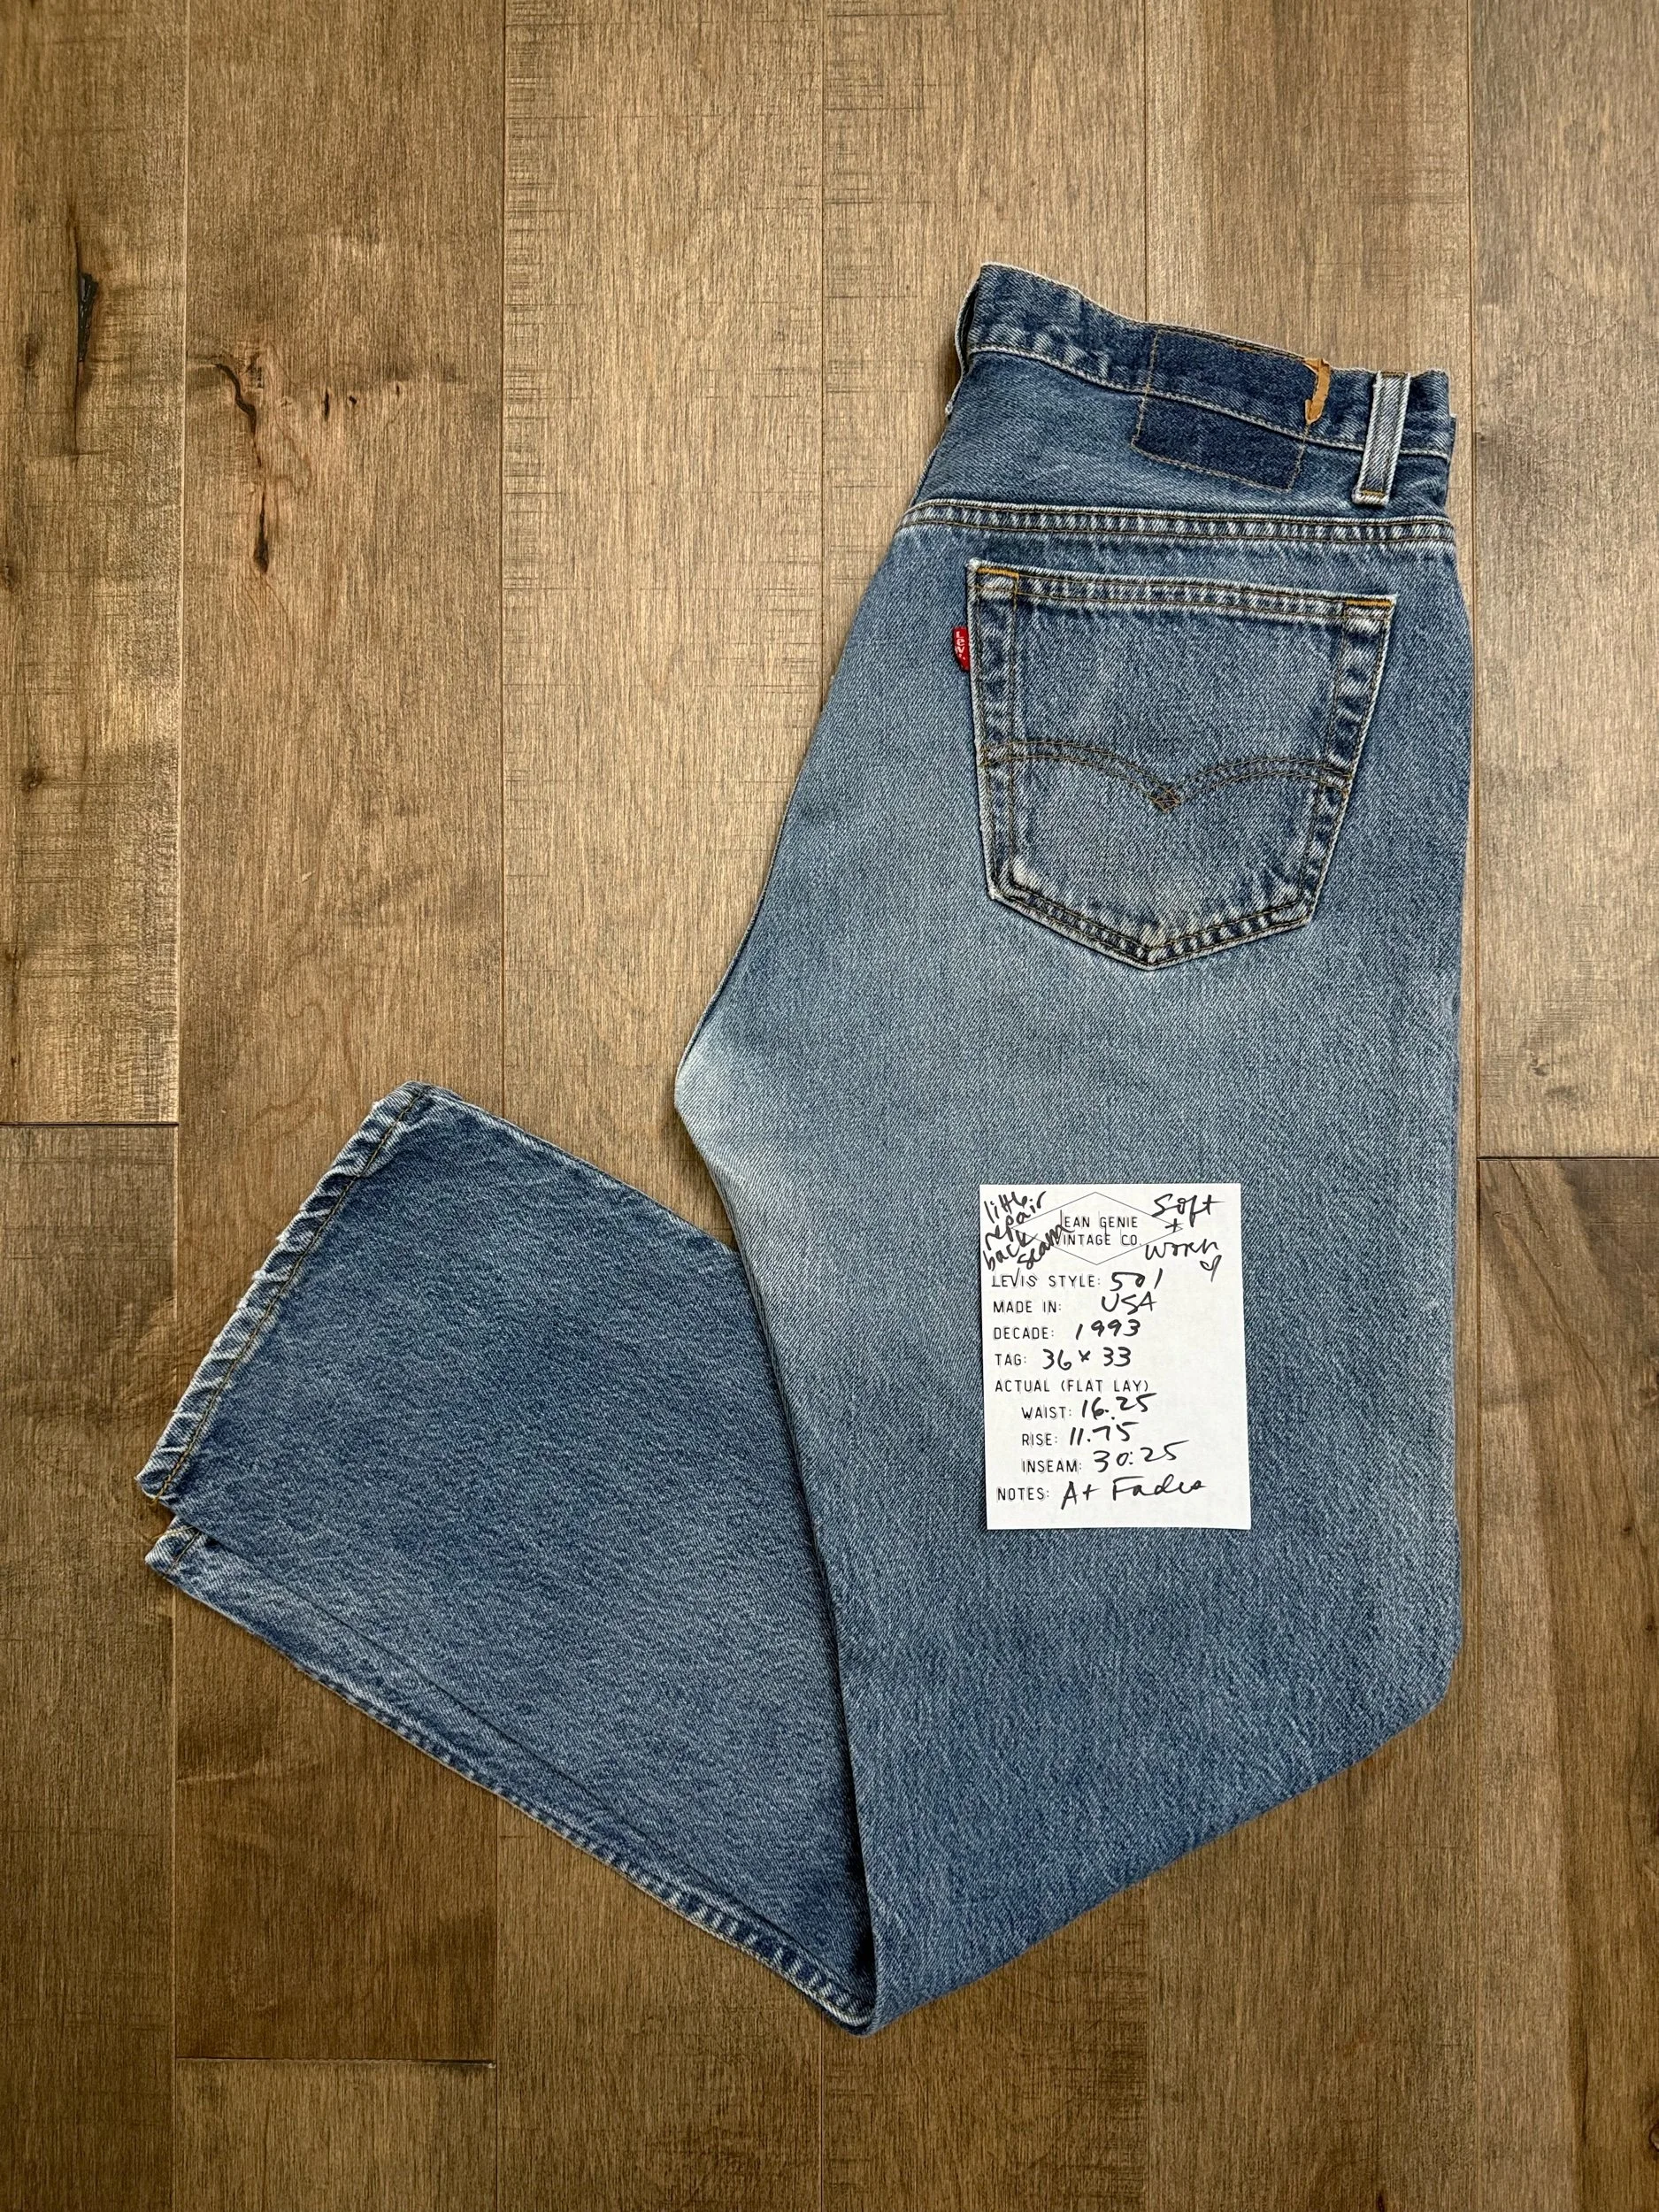 LEVI
little
repair
back
seam
EAN GENIE
VINTAGE CO.
Soft
+
worn
LEVIS STYLE: 501
MADE IN: USA
DECADE: 1993
TAG: 36 x 33
ACTUAL (FLAT LAY)
WAIST: 16.25
RISE: 11.75
INSEAM: 30.25
NOTES: A+ Fades